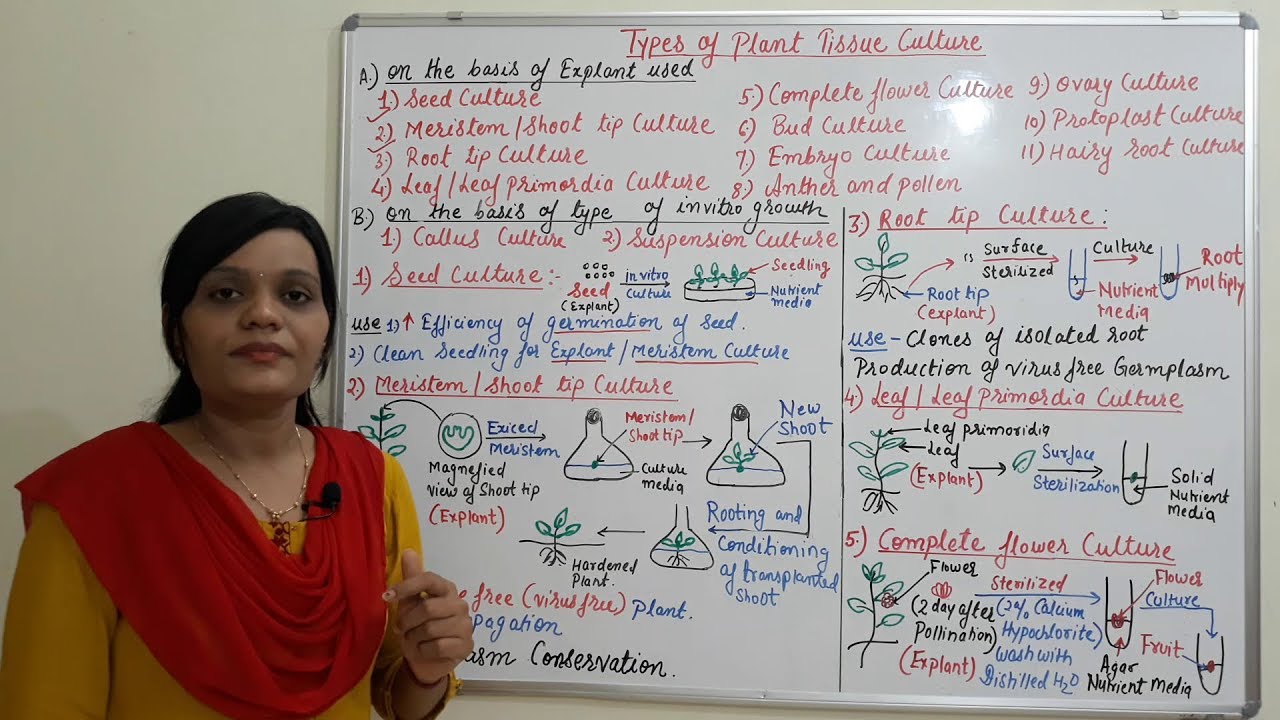 Types of Plant Tissue Culture
A.) on the basis of Explant used
1.) Seed Culture
2.) Meristem/Shoot tip Culture
3.) Root tip Culture
4.) Leaf/Leaf primordia Culture
5.) Complete flower Culture
6.) Bud Culture
7.) Embryo Culture
8.) Anther and pollen
9.) Ovary Culture
10) Protoplast Culture
11) Hairy root Culture
B.) on the basis of type of invitro growth
1.) Callus Culture 2.) Suspension Culture
1) Seed Culture:-
Seed
(Explant)
in vitro
Culture
Seedling
Nutrient
media
use 1) ↑ Efficiency of germination of seed.
2) Clean Seedling for Explant/Meristem Culture
2) Meristem/Shoot tip Culture
Magnefied
view of Shoot tip
(Explant)
Exiced
Meristem
Meristom/
Shoot tip
Culture
media
New
Shoot
Rooting and
Conditioning
of transplanted
Shoot
Hardened
Plant.
free (virus free) Plant.
Conservation.
3.) Root tip Culture:
Root tip
(explant)
is Surface
Sterilized
Nutrient
Media
Culture
Root
Multiply
use - Clones of isolated root
Production of virus free Germplasm
4.) Leaf/Leaf Primordia Culture
Leaf primoridia
Leaf
(Explant)
Surface
Sterilization
Solid
Nutrient
Media
5.) Complete flower Culture
Flower
(2 day after
Pollination)
(Explant)
Sterilized
(2% Calcium
Hypochlorite)
wash with
Distilled H2O
Agar
Nutrient Media
Flower
Culture
Fruit